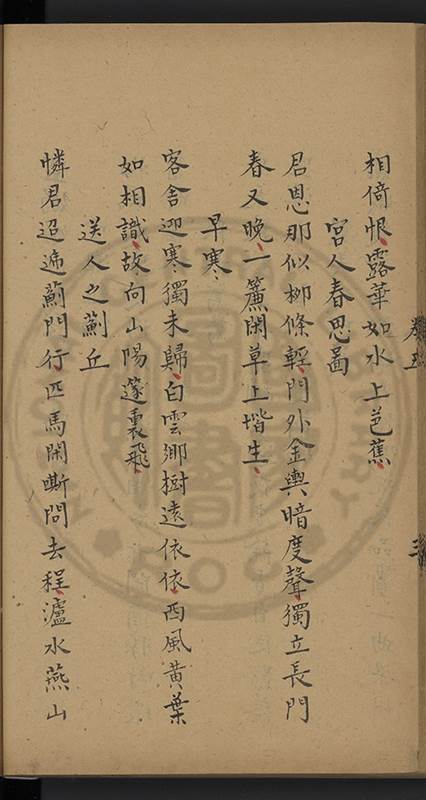 相倚恨露華如水上芭蕉
宮人春思啚
君恩那似柳條輕門外金輿暗度聲獨立長門
春又晚一簾閑草上堦生
早寒
客舍迎寒獨未歸白雲鄉樹遠依依西風黃葉
如相識故向山陽蓬裏飛
送人之薊丘
憐君迢遞薊門行匹馬閑嘶問去程瀘水燕山